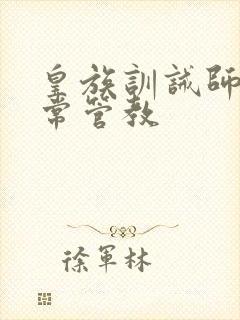 皇族訓誡師
常管教
徐軍林